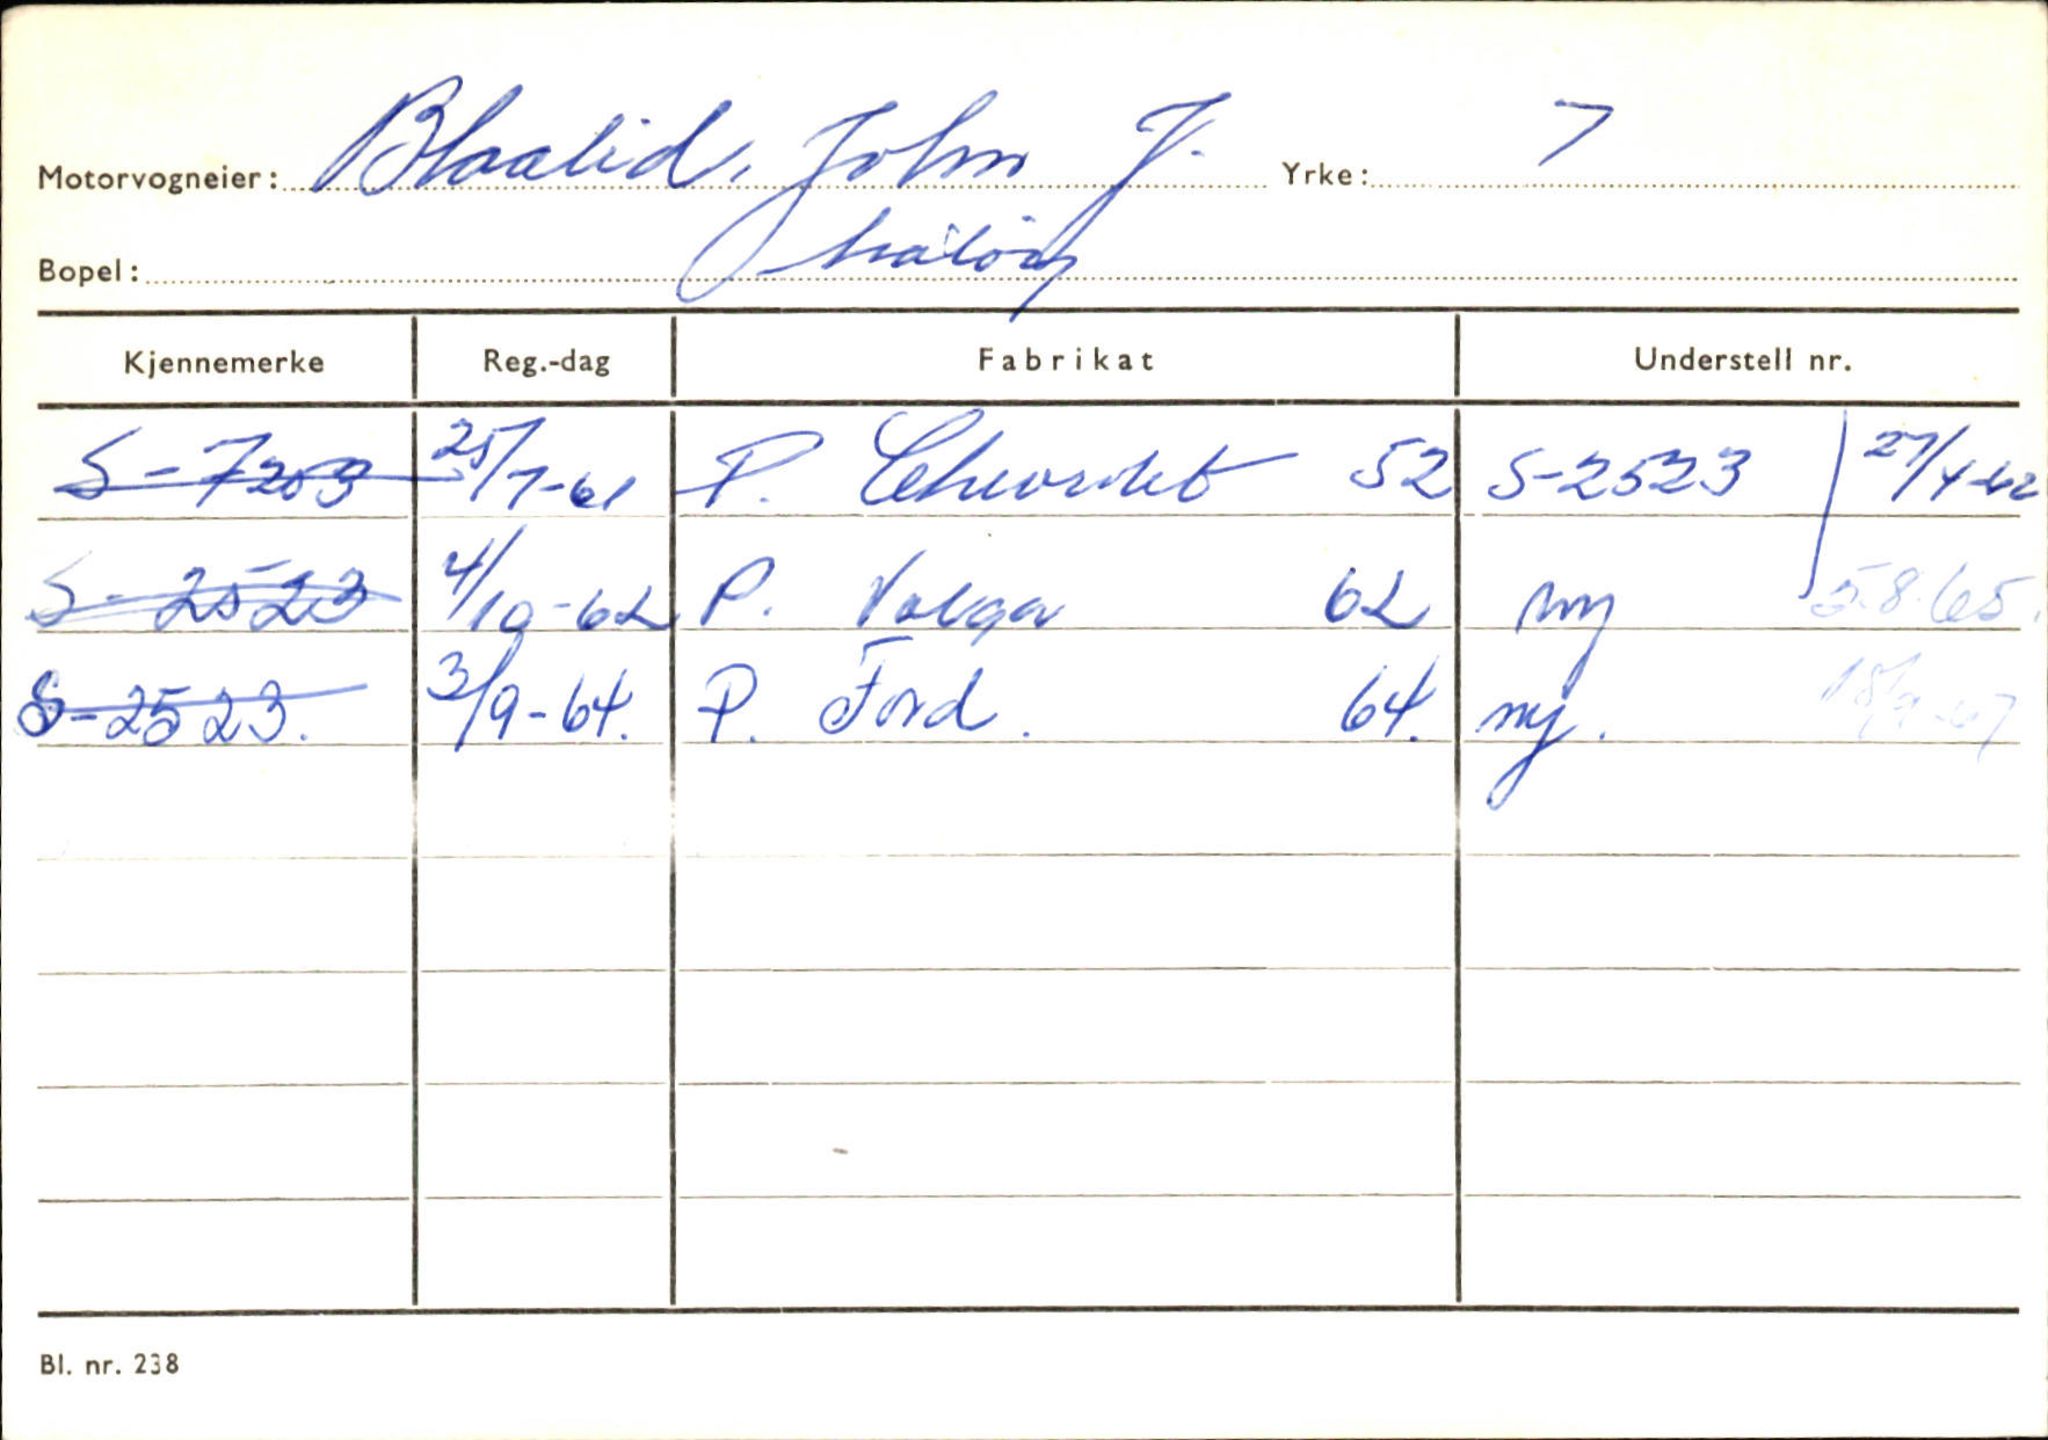 Motorvogneier: Blaalid, John J. Yrke: 7
Bopel: Måløy
Kjennemerke Reg.-dag Fabrikat Understell nr.
S-7203 25/7-61 P. Chevrolet 52 S-2523 27/4-62
S-2523 4/10-62 P. Volga 62 ny 5.8.65.
S-2523. 3/9-64. P. Ford. 64. ny. 18/9-67
Bl. nr. 238